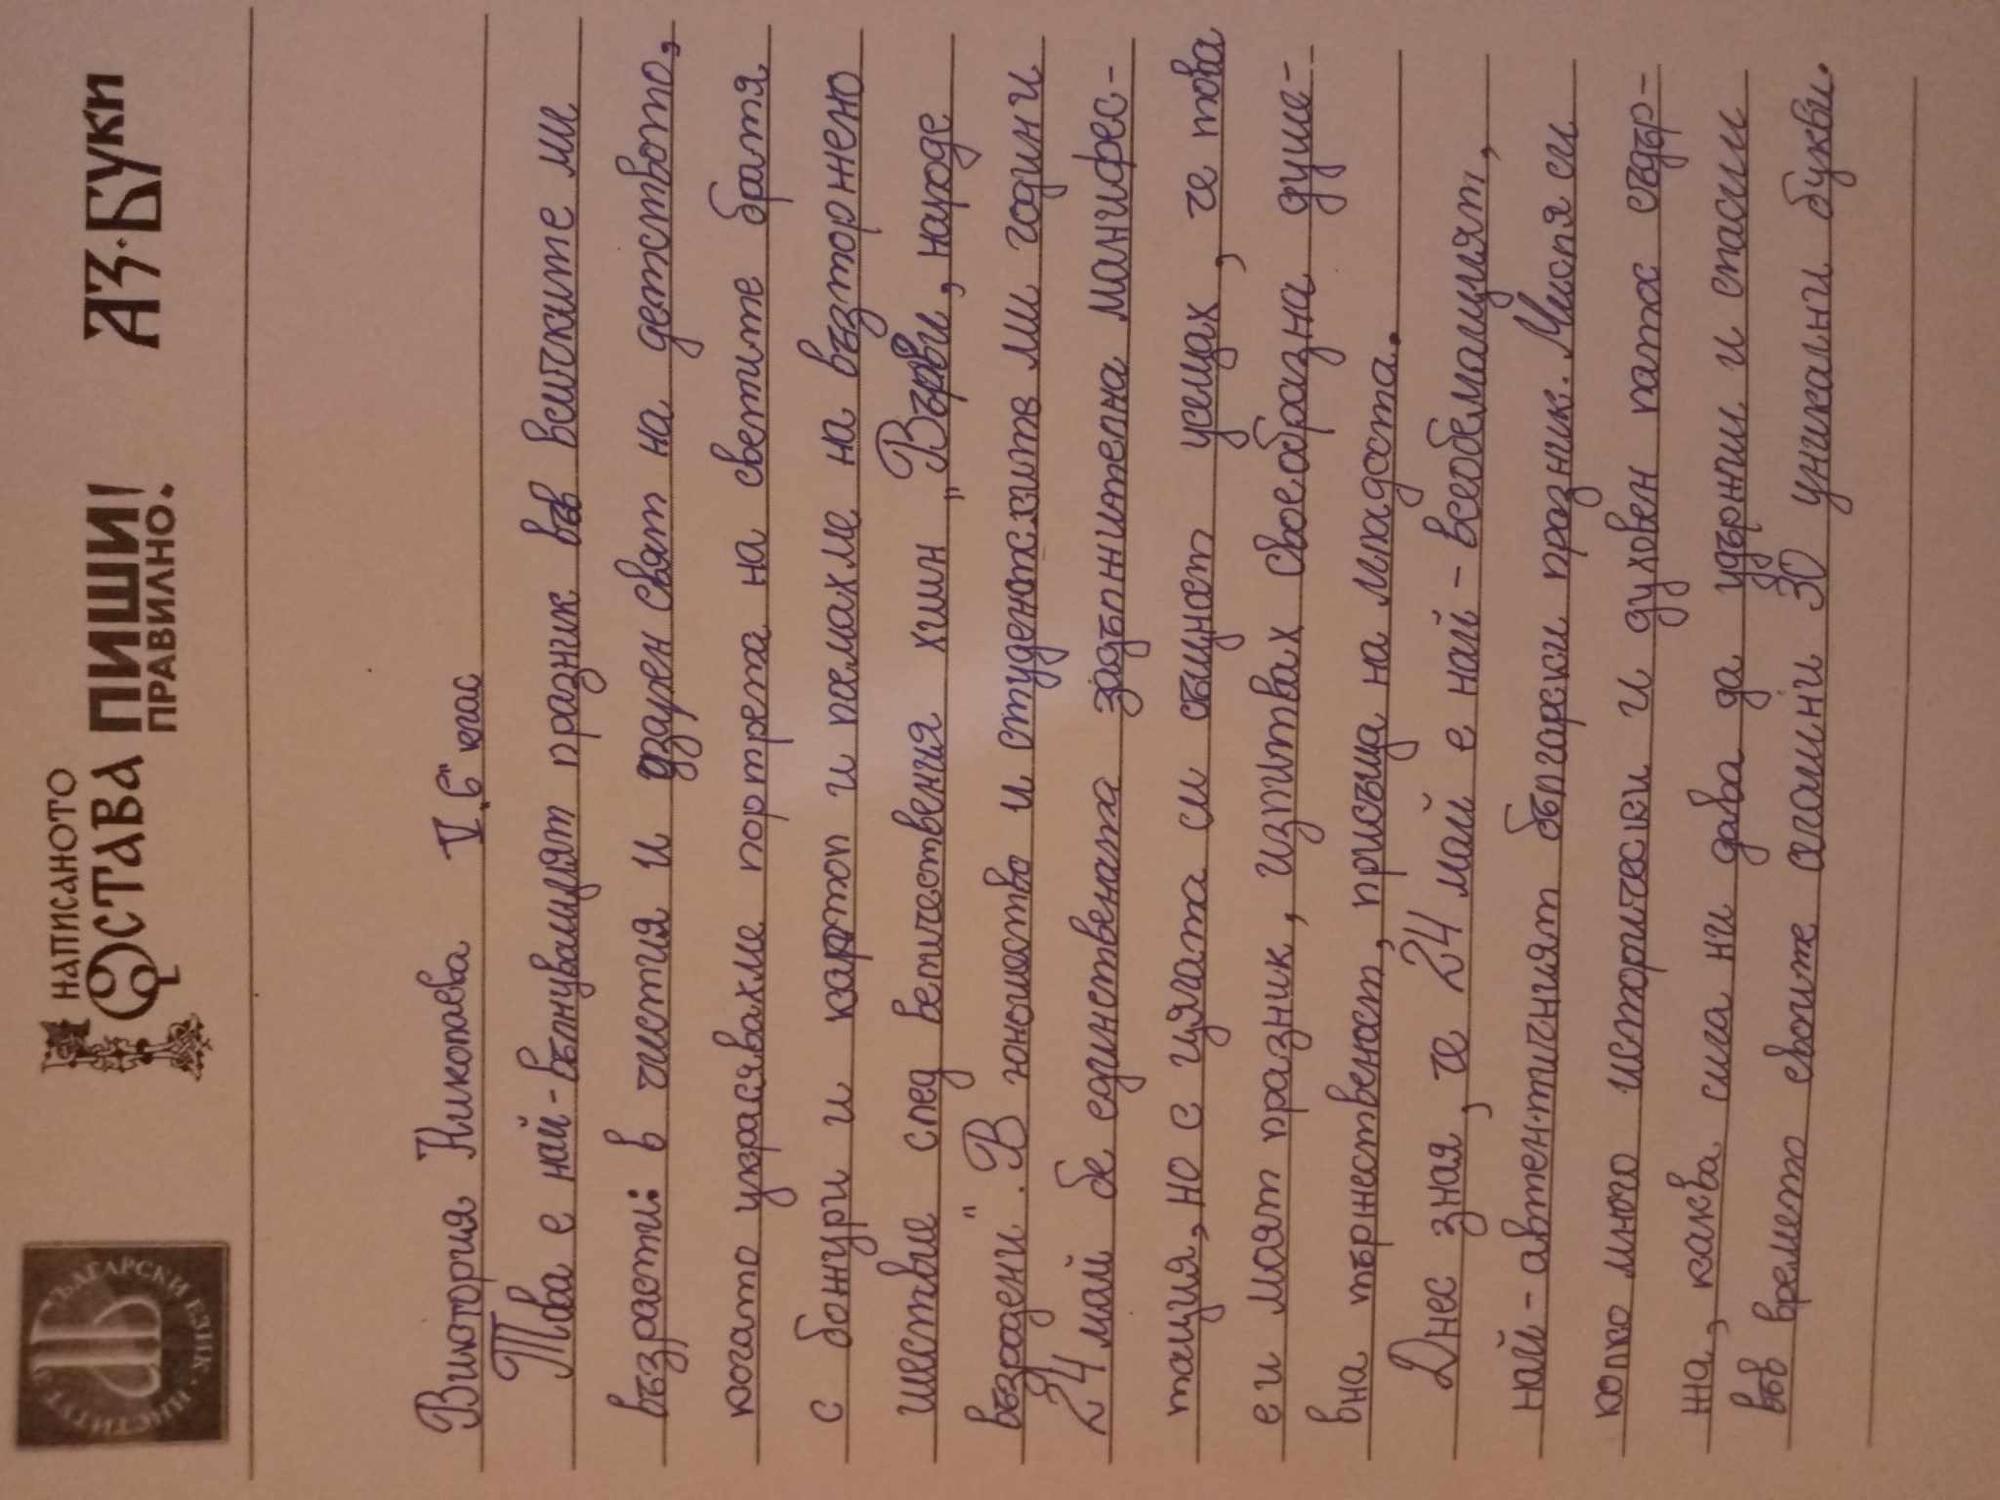 ИНСТИТУТ ЗА БЪЛГАРСКИ ЕЗИК
НАПИСАНОТО
ОСТАВА ПИШИ!
ПРАВИЛНО.
АЗ·БУКИ
Виктория Николаева V „б" клас
Това е най-вълнуващият празник във всичките ми
възрасти: в чистия и озарен свят на детството,
когато украсявахме портрета на светите братя
с божури и картон и поемахме на възторжено
шествие след величествения химн „Върви, народе
възродени". В юношество и студентските ми години
24 май бе единствената задължителна манифес-
тация, но с цялата си същност усещах, че това
е и моят празник, изпитвах своеобразна душе-
вна тържественост, присъща на младостта.
Днес зная, че 24 май е най-всеобемащият,
най-автентичният български празник. Мисля си
колко много исторически и духовен патос съдър-
жа, каква сила ни дава да удържим и спасим
във времето своите само 30 уникални букви.